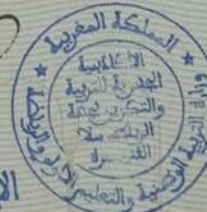 المملكة المغربية
وزارة التربية الوطنية والتعليم الأولي والرياضة
الأكاديمية
الجهوية للتربية
والتكوين لجهة
الرباط سلا
القنيطرة